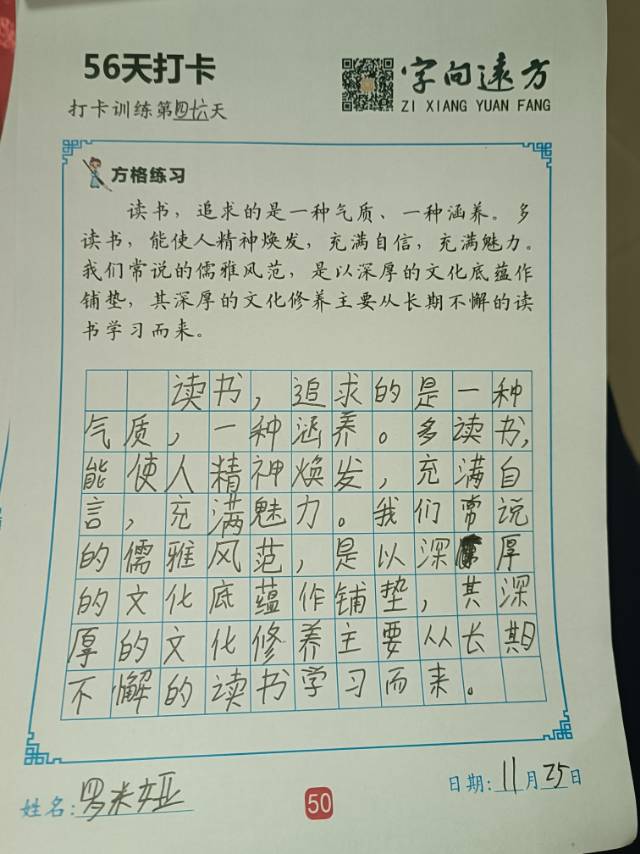 56天打卡
打卡训练第四十六天
字向远方
ZI XIANG YUAN FANG
方格练习
读书，追求的是一种气质、一种涵养。多
读书，能使人精神焕发，充满自信，充满魅力。
我们常说的儒雅风范，是以深厚的文化底蕴作
铺垫，其深厚的文化修养主要从长期不懈的读
书学习而来。
读书，追求的是一种
气质，一种涵养。多读书，
能使人精神焕发，充满自
言，充满魅力。我们常说
的儒雅风范，是以深厚
的文化底蕴作铺垫，其深
厚的文化修养主要从长期
不懈的读书学习而来。
姓名：罗米娅
50
日期：11月25日